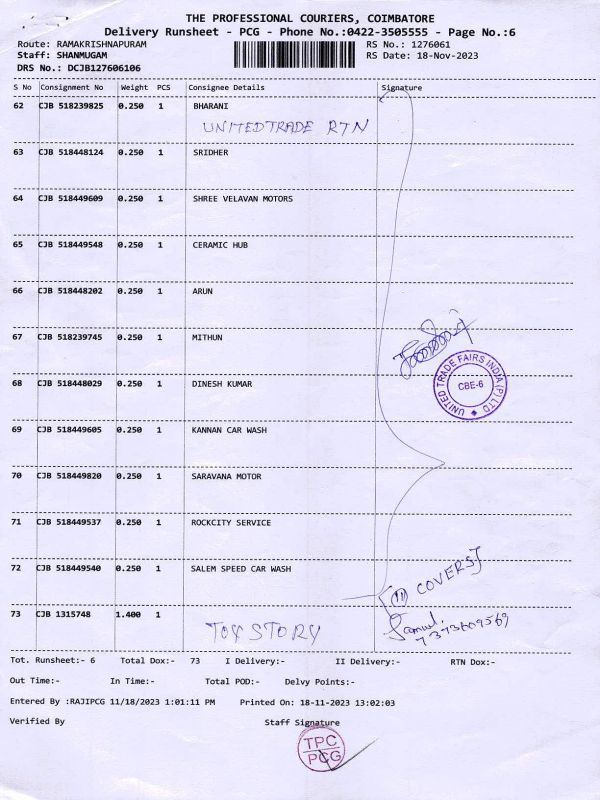 THE PROFESSIONAL COURIERS, COIMBATORE
Delivery Runsheet - PCG - Phone No.:0422-3505555 - Page No.:6
Route: RAMAKRISHNAPURAM RS No.: 1276061
Staff: SHANMUGAM RS Date: 18-Nov-2023
DRS No.: DCJB127606106
S No Consignment No Weight PCS Consignee Details Signature
62 CJB 518239825 0.250 1 BHARANI
UNITEDTRADE RTN
63 CJB 518448124 0.250 1 SRIDHER
64 CJB 518449609 0.250 1 SHREE VELAVAN MOTORS
65 CJB 518449548 0.250 1 CERAMIC HUB
66 CJB 518448202 0.250 1 ARUN
67 CJB 518239745 0.250 1 MITHUN
UNITED TRADE FAIRS INDIA (P) LTD
CBE-6
68 CJB 518448029 0.250 1 DINESH KUMAR
69 CJB 518449605 0.250 1 KANNAN CAR WASH
70 CJB 518449820 0.250 1 SARAVANA MOTOR
71 CJB 518449537 0.250 1 ROCKCITY SERVICE
72 CJB 518449540 0.250 1 SALEM SPEED CAR WASH
(11) COVERS
73 CJB 1315748 1.400 1
TOY STORY
Samuel.
7373609569
Tot. Runsheet:- 6 Total Dox:- 73 I Delivery:- II Delivery:- RTN Dox:-
Out Time:- In Time:- Total POD:- Delvy Points:-
Entered By :RAJIPCG 11/18/2023 1:01:11 PM Printed On: 18-11-2023 13:02:03
Verified By Staff Signature
TPC
PCG